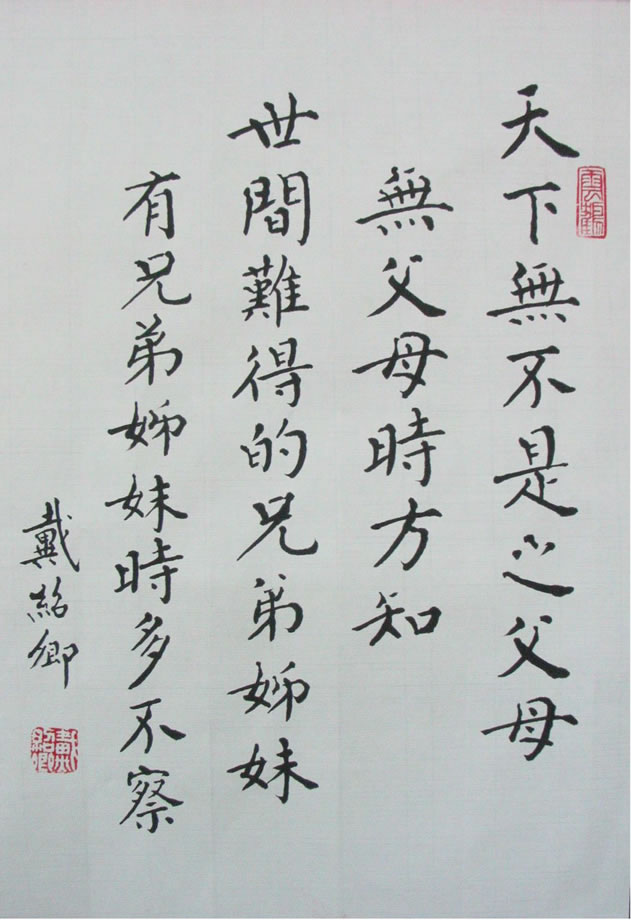 天下無不是之父母
無父母時方知
世間難得的兄弟姊妹
有兄弟姊妹時多不察
戴紹卿
戴紹卿